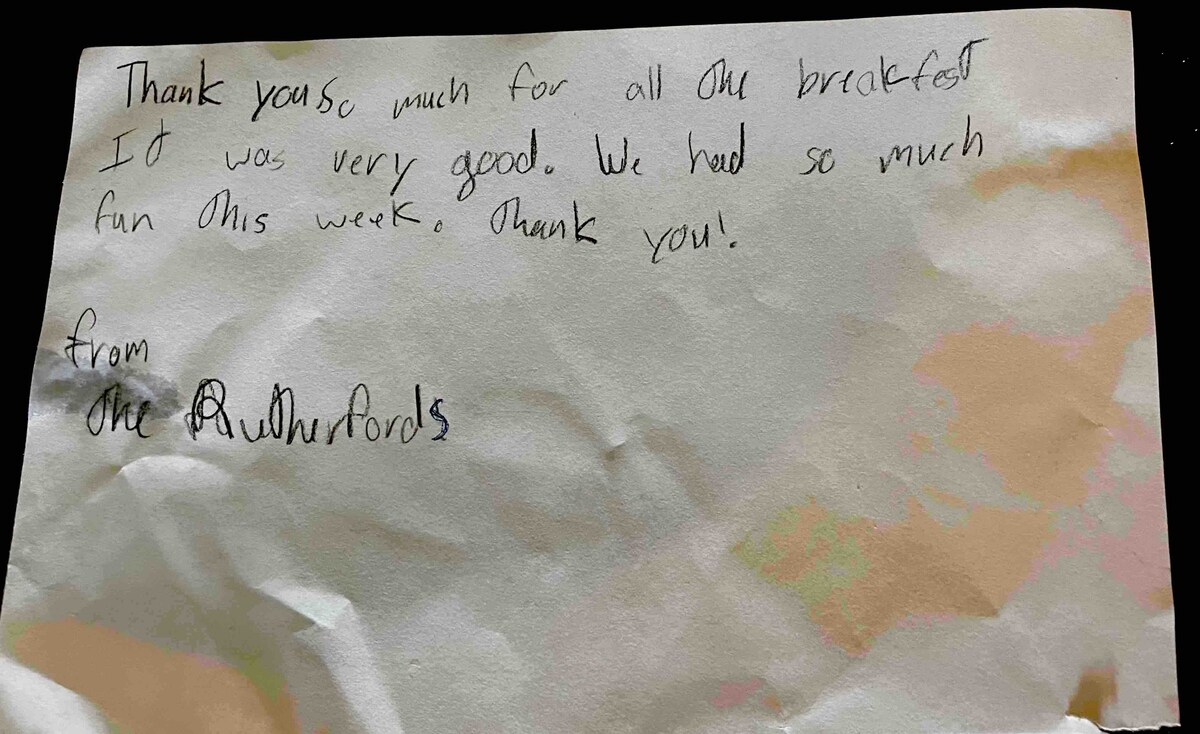 Thank you so much for all the breakfest
It was very good. We had so much
fun this week. Thank you!
from
The Rutherfords